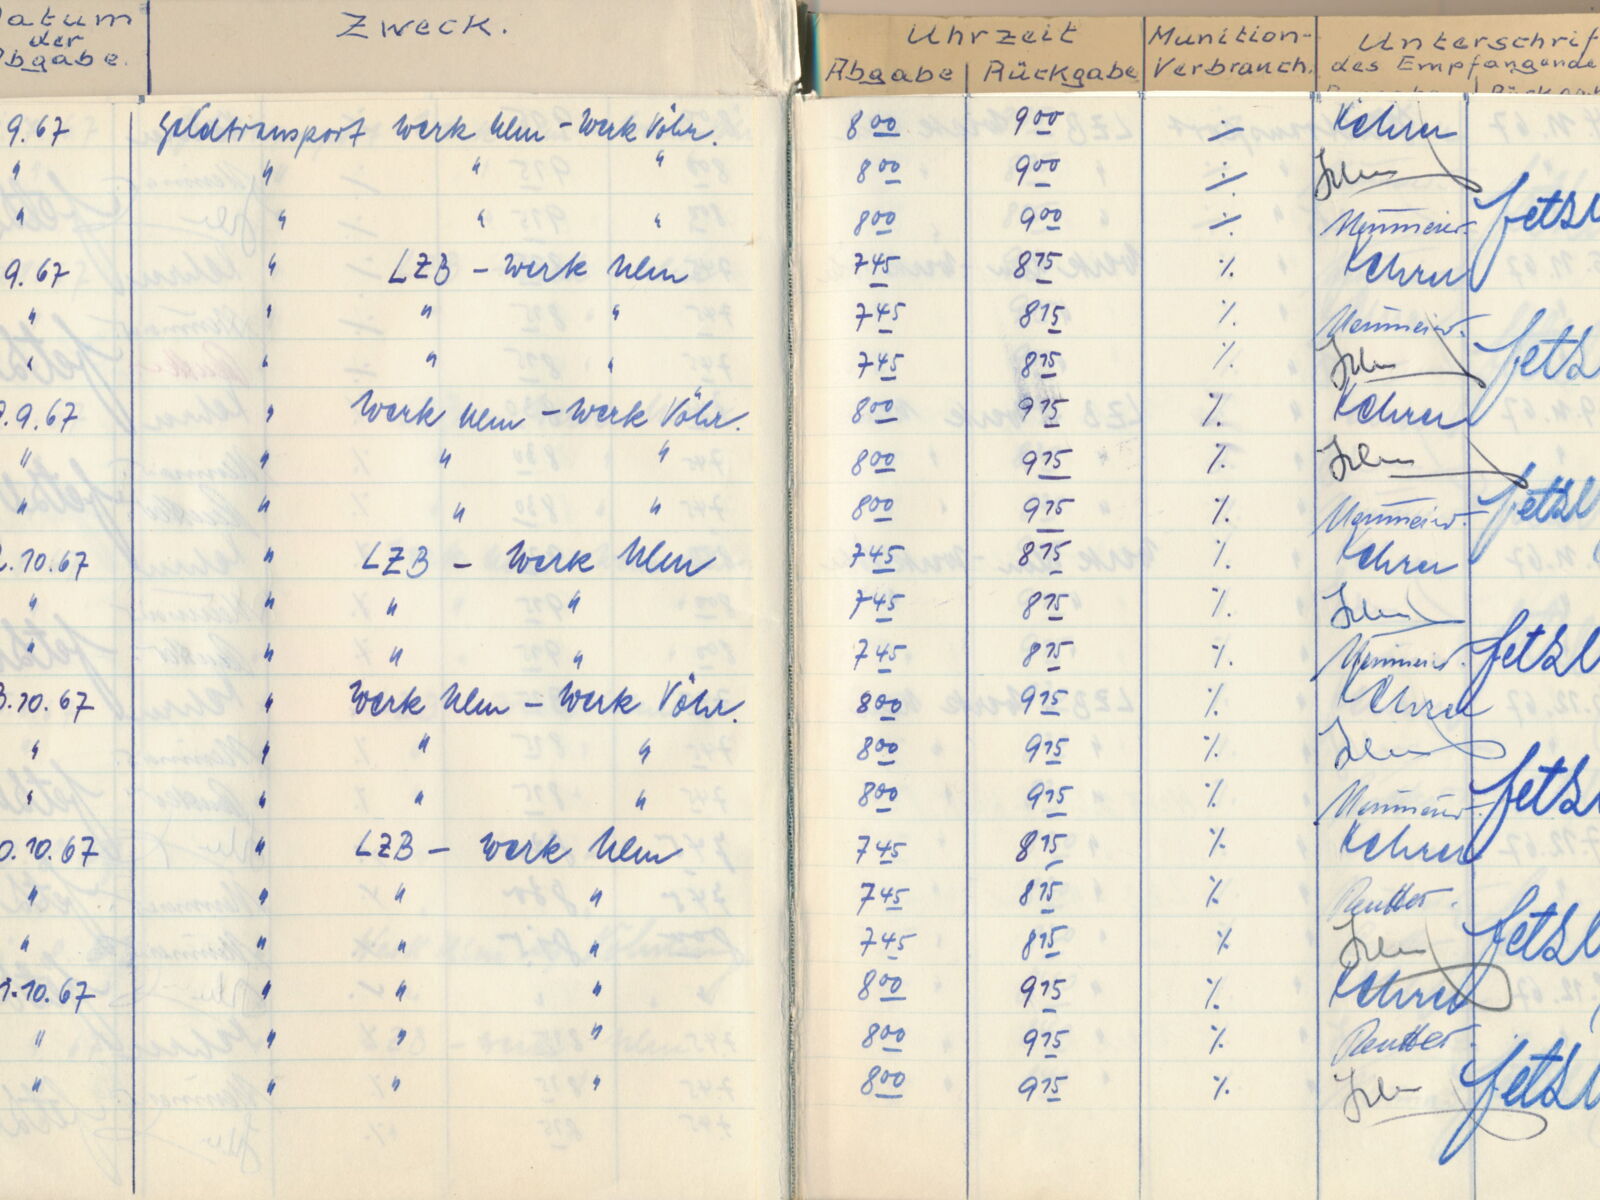 Datum der Abgabe. Zweck. Uhrzeit Munition- Verbrauch. Unterschrif des Empfangende
Abgabe Rückgabe
9.67 Geldtransport Werk Ulm - Werk Vöhr. 8 00 9 00 ·/. Kehrer
" " " " 8 00 9 00 ·/.
" " " " 8 00 9 00 ·/. Fetzl
9.67 " LZB - Werk Ulm 7 45 8 15 ·/. Kehrer
" " " " 7 45 8 15 ·/.
" " " " 7 45 8 15 ·/. Fetzl
.9.67 " Werk Ulm - Werk Vöhr. 8 00 9 15 ·/. Kehrer
" " " " 8 00 9 15 ·/.
" " " " 8 00 9 15 ·/. Fetzl
.10.67 " LZB - Werk Ulm 7 45 8 15 ·/. Kehrer
" " " " 7 45 8 15 ·/.
" " " " 7 45 8 15 ·/. Fetzl
3.10.67 " Werk Ulm - Werk Vöhr. 8 00 9 15 ·/. Kehrer
" " " " 8 00 9 15 ·/.
" " " " 8 00 9 15 ·/. Fetzl
0.10.67 " LZB - Werk Ulm 7 45 8 15 ·/. Kehrer
" " " " 7 45 8 15 ·/. Reutter.
" " " " 7 45 8 15 ·/. Fetzl
1.10.67 " " " 8 00 9 15 ·/. Kehrer
" " " " 8 00 9 15 ·/. Reutter.
" " " " 8 00 9 15 ·/. Fetzl